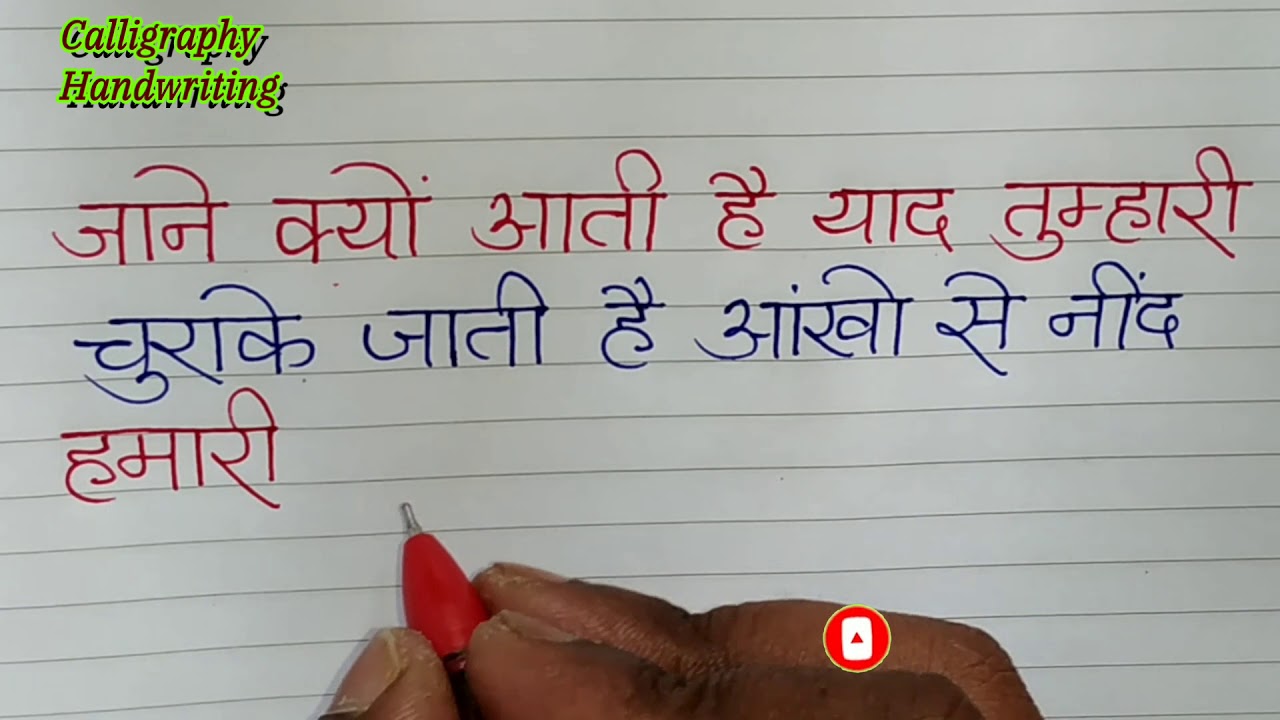 Calligraphy
Handwriting
जाने क्यों आती है याद तुम्हारी
चुराके जाती है आंखो से नींद
हमारी